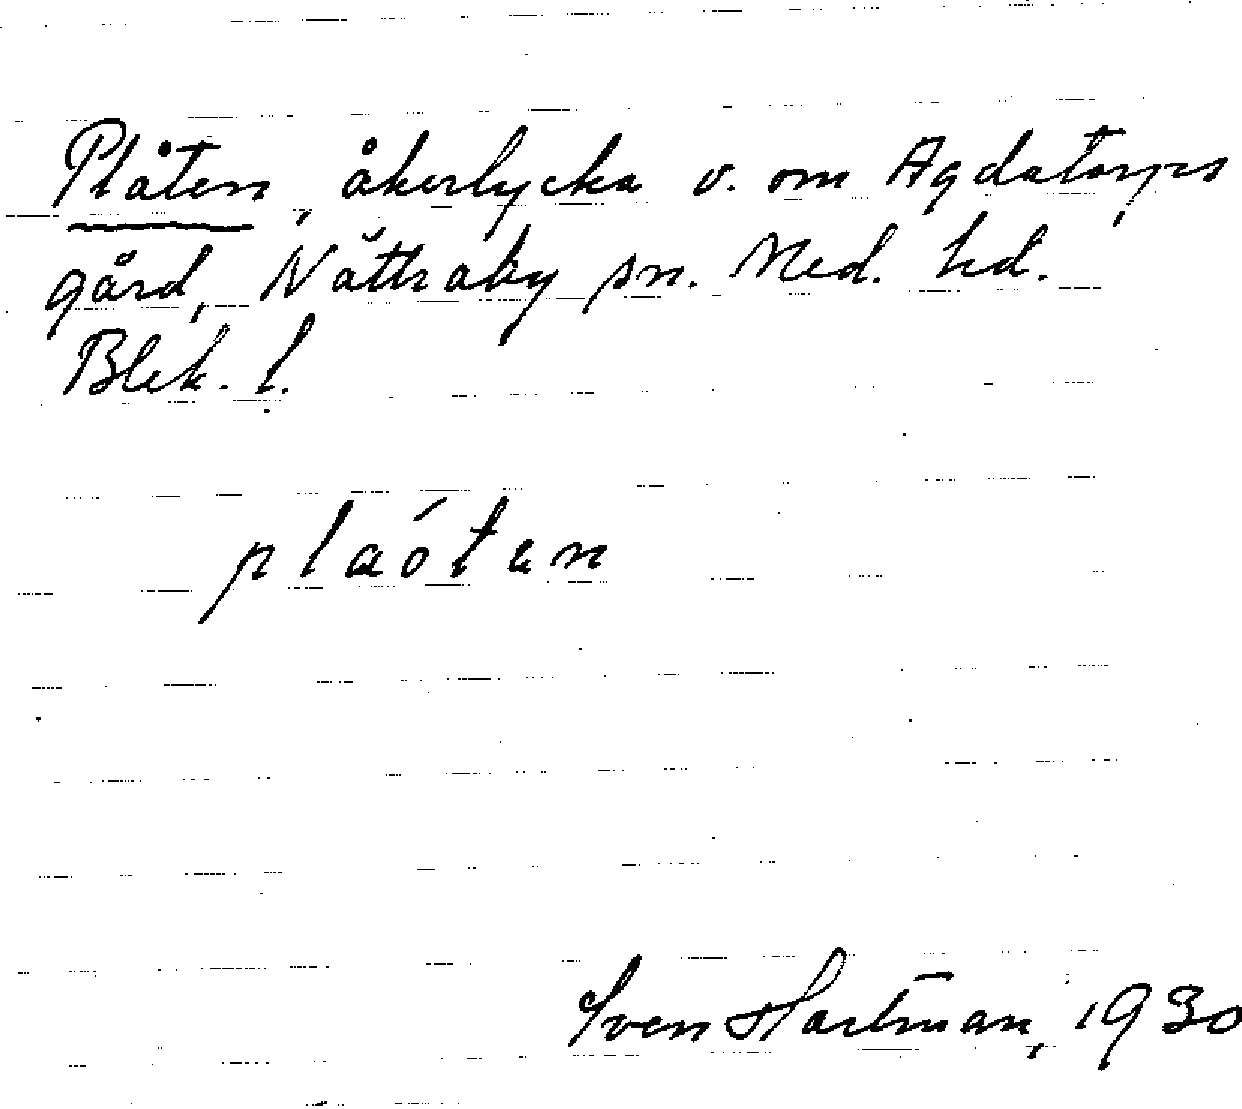 Plåten, åkerlycka v. om Agdatorps
gård, Nättraby sn. Med. hd.
Blek. l.
plaótan
Sven Hartman, 1930